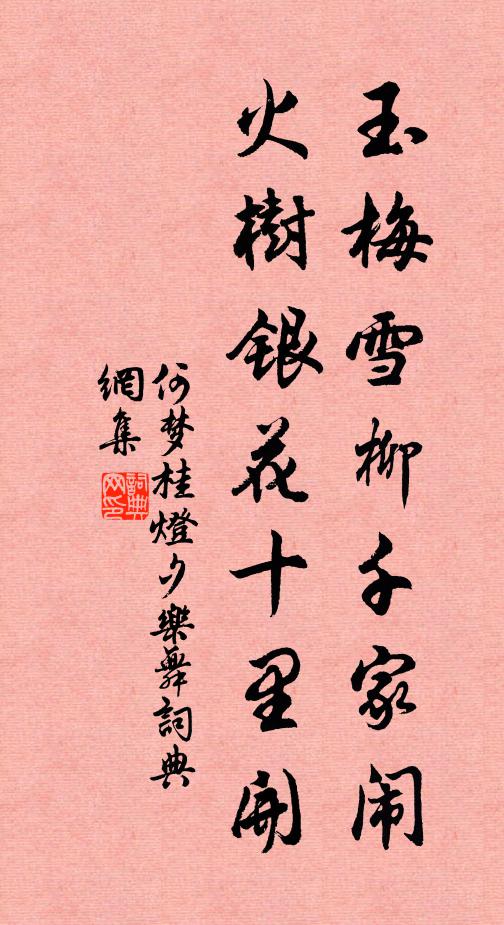 玉梅雪柳千家闹
火樹銀花十里開
何梦桂燈夕樂舞詞典
網集
詞典
网印